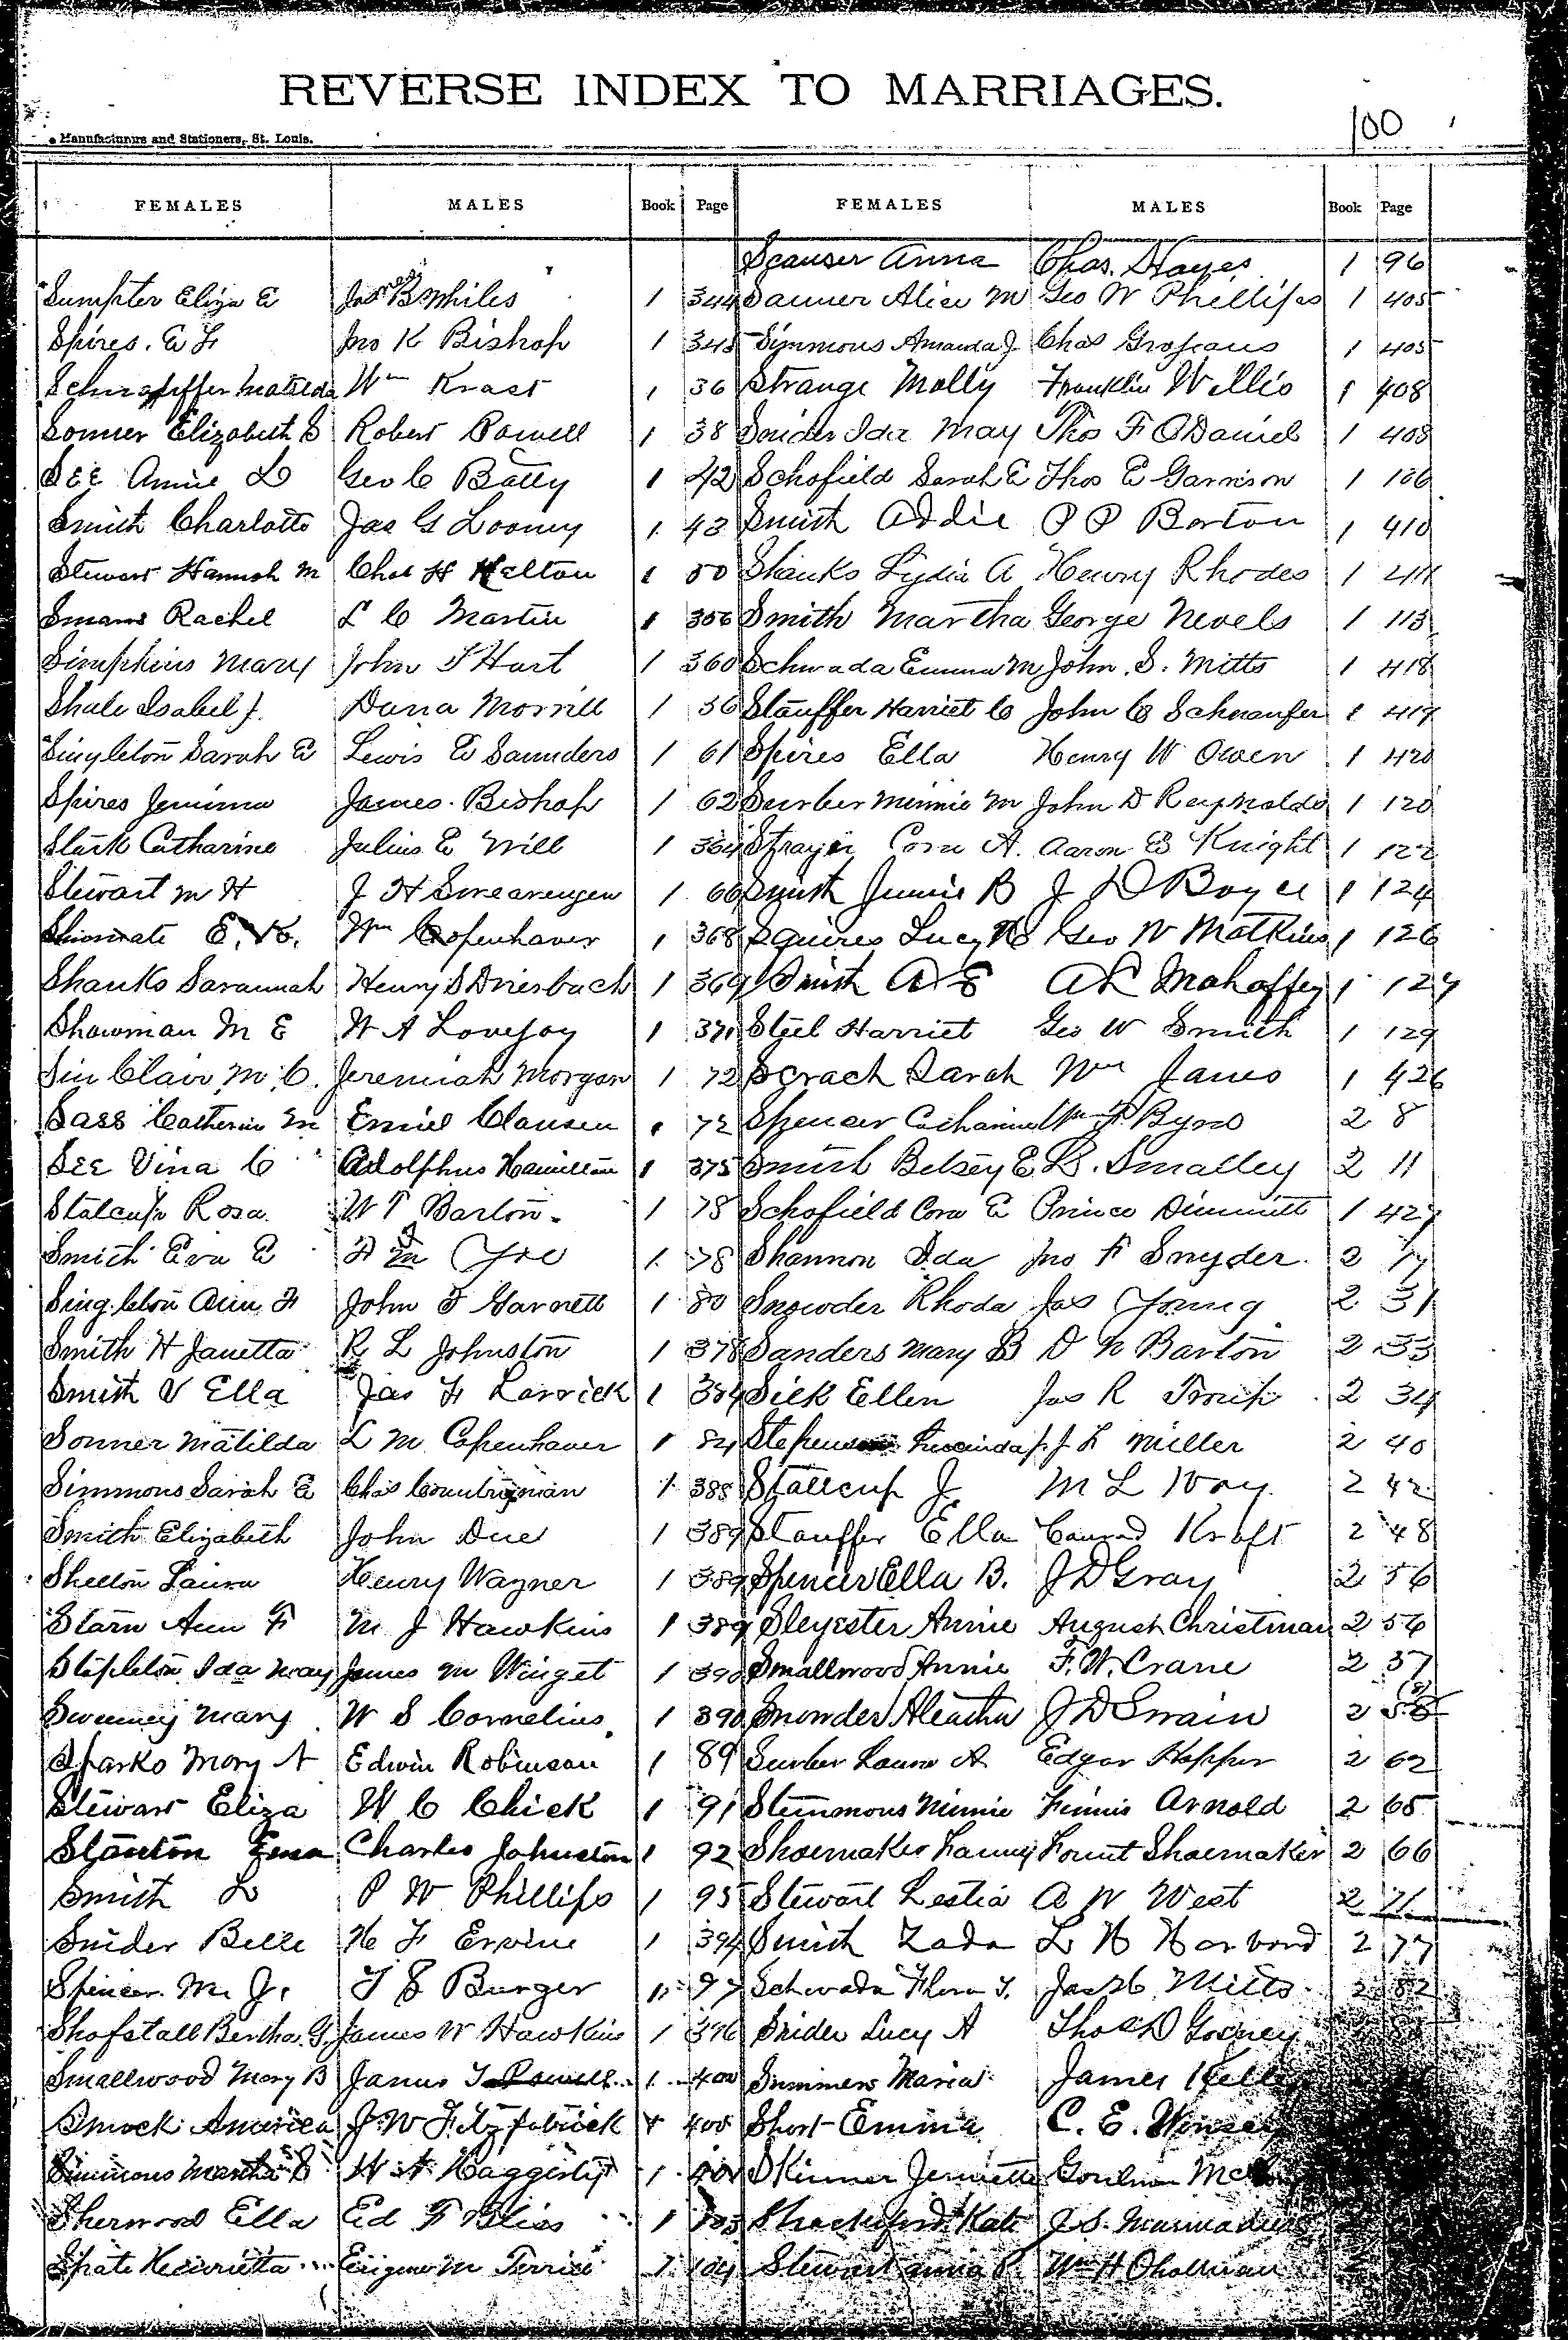 REVERSE INDEX TO MARRIAGES.
100
Manufacturers and Stationers, St. Louis.
FEMALES MALES Book Page FEMALES MALES Book Page
Scauser Anna Chas. Hayes 1 96
Sumpter Eliza E Jas B Whiles 1 344 Sauner Alice M Geo W Phillips 1 405
Spires. E F Jno K Bishop 1 345 Simmons Amanda J Chas Grojeans 1 405
Matilda Wm Krast 1 36 Strange Molly Franklin Willis 1 408
Sonner Elizabeth S Robert Powell 1 38 Snider Ida May Thos F ODaniel 1 408
See Annie L Geo C Batty 1 42 Schofield Sarah E Thos E Garrison 1 106
Smith Charlotte Jas G Looney 1 43 Smith Addie P P Barton 1 410
Stewart Hannah M Chas H Helton 1 50 Shanks Lydia A Henry Rhodes 1 411
Rachel L C Martin 1 356 Smith Martha George Nevels 1 113
Simpkins Mary John T Hart 1 360 Schwada Emma M John. S. Mitts 1 418
Shale Isabel J. Dana Morrill 1 56 Stauffer Harriet C John C Schnaufer 1 419
Singleton Sarah E Lewis E Saunders 1 61 Spires Ella Henry W Owen 1 420
Spires Jemima James. Bishop 1 62 Surber Minnie M John D Reynolds 1 120
Stark Catharine Julius E Will 1 364 Strayer Cora A. Aaron B Knight 1 122
Stewart M H J H Swearengen 1 66 Smith Jennie B J D Boyce 1 124
E. Wm Copenhaver 1 368 Squires Lucy Geo W Matkins 1 126
Shanks Savannah Henry S Driesbach 1 369 Smith A E A L Mahaffey 1 127
Showman M E W A Lovejoy 1 371 Steel Harriet Geo W Smith 1 129
Sin Clair M. C. Jeremiah Morgan 1 72 Scrach Sarah Wm Janes 1 426
Sass Catherine M Emiel Clausen 1 72 Spencer Wm F Byrd 2 8
See Vina C Adolphus Hamilton 1 375 Smith Betsey E L. Smalley 2 11
Stalcup Rosa. W T Barton. 1 78 Schofield Cora E Prince Dimmitt 1 427
Smith Eva E F M Yoe 1 78 Shannon Ida Jno F Snyder. 2 17
Singleton Ann F John T Garnett 1 80 Snowder Rhoda Jas Young 2 31
Smith H Janetta R L Johnston 1 378 Sanders Mary B D N Barton 2 33
Smith V Ella Jas F Larrick 1 384 Sick Ellen Jas R Troup 2 34
Sonner Matilda L M Copenhaver 1 84 Stephenson Lucinda J. J L Miller 2 40
Simmons Sarah E Chas Countryman 1 388 Stallcup J M L Ivay 2 42
Smith Elizabeth John Due 1 389 Stauffer Ella Conrad Kraft 2 48
Shelton Laura Henry Wagner 1 389 Spencer Ella B. J D Gray 2 56
Starn Ann F M J Hawkins 1 389 Sleyester Annie August Christman 2 56
Stapleton Ida May James M Winget 1 390 Smallwood Annie F. W. Crane 2 57
Sweeney Mary W S Cornelius 1 390 Snowder Aleatha J D Swain 2 58
Sparks Mary A Edwin Robinson 1 89 Surber Laura A Edgar Hopper 2 62
Stewart Eliza W C Chick 1 91 Stemmons Minnie Finnis Arnold 2 65
Stanton Emma Charles Johnston 1 92 Shoemaker Fanny Fount Shoemaker 2 66
Smith L P W Phillips 1 95 Stewart Lestia A W West 2 71
Snider Belle H F Ervine 1 394 Smith Zada L H Harvard 2 77
Spencer. M. J. T E Burger 1 97 Schwada Flora T. Jas H. Mitts 2 82
Shofstall Bertha. G. James W Hawkins 1 396 Snider Lucy A Thos D Gosney
Smallwood Mary B James T Powell 1 400 Summers Maria James Kelley
Smock America J. W Fitzpatrick 1 400 Short Emma C. E. Winsey
Simmons Martha S W A Haggerty 1 401 Skinner Jennette
Sherwood Ella Ed F Bliss 1 103 Shackelford Kate J. S. Marmaduke
Spate Henrietta Eugene M Terrice 1 104 Stewart Anna P. Wm H Oholleran